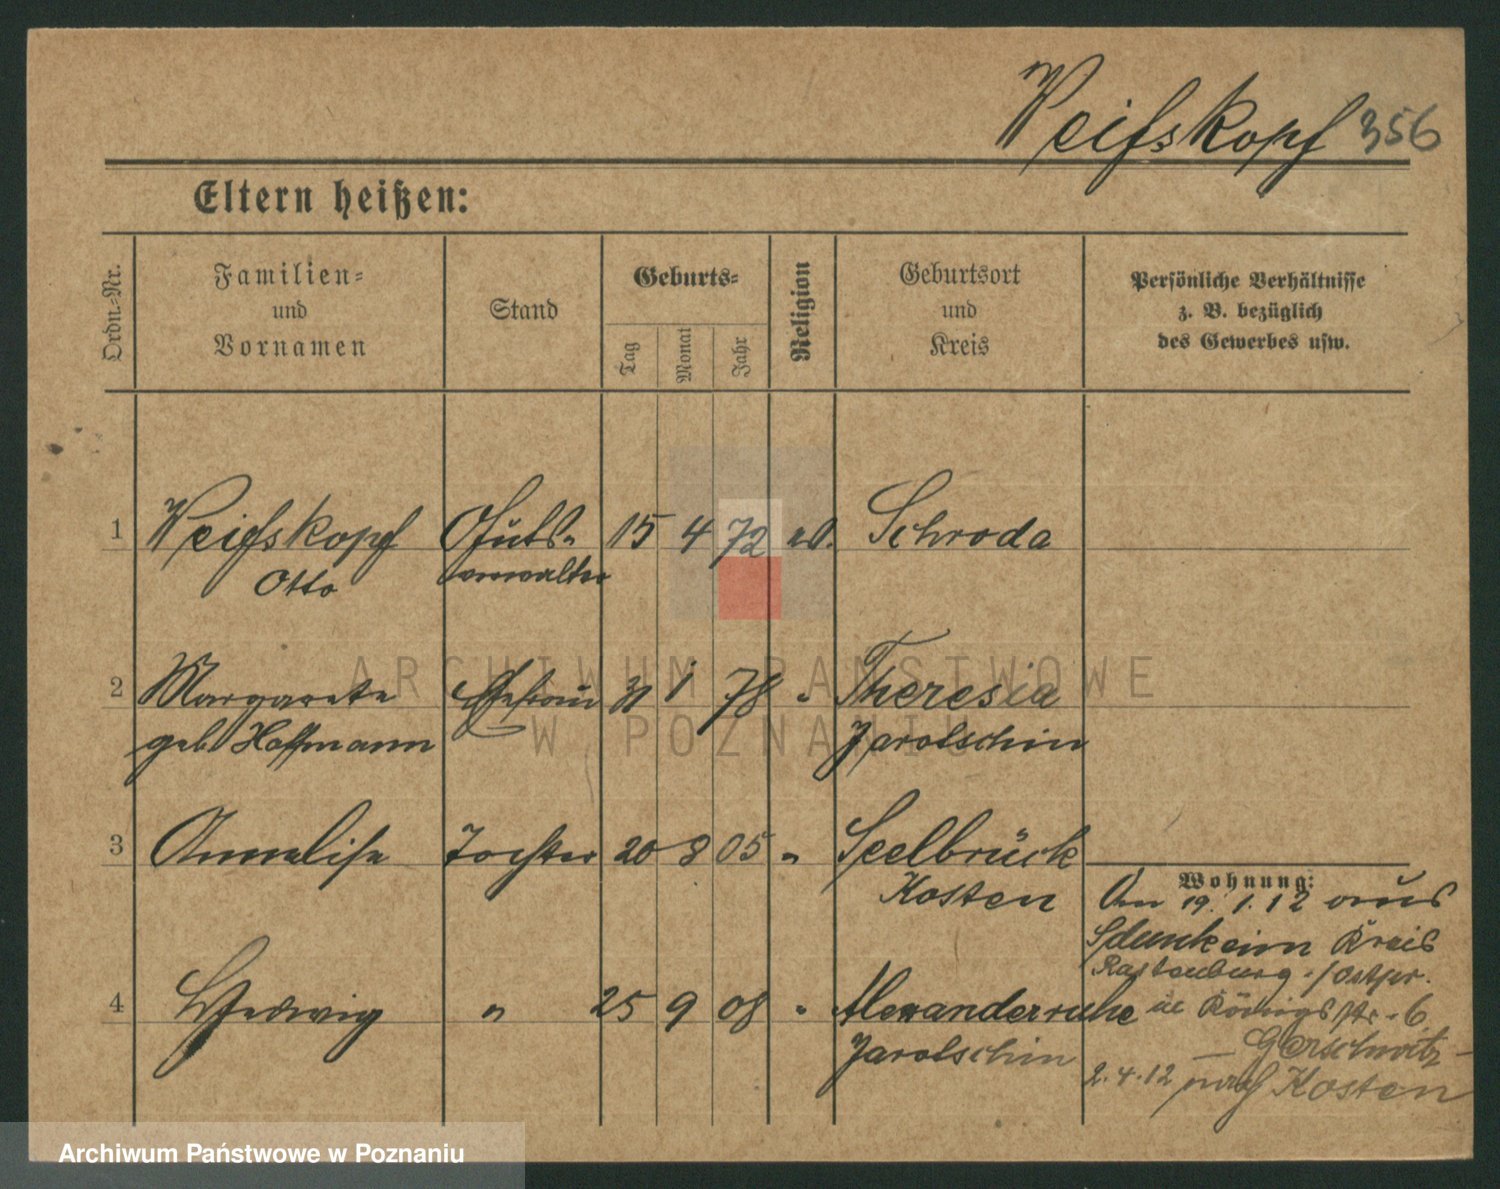 Weifskopf 356
Eltern heißen:
Ordn.-Nr.
Familien-
und
Vornamen
Stand
Geburts-
Tag
Monat
Jahr
Religion
Geburtsort
und
Kreis
Persönliche Verhältnisse
z. B. bezüglich
des Gewerbes usw.
1 Weifskopf Guts- 15 4 72 ev. Schroda
Otto verwalter
2 Margarete Ehefrau 31 1 78 " Theresia
geb. Hoffmann Jarotschin
3 Annelise Tochter 20 8 05 " Seelbrück
Kosten
Wohnung:
Am 19. 1. 12 aus
Kreis
Rastenburg /Ostpr.
4 Hedwig " 25 9 08 " Alexanderruhe
Jarotschin
in Königstr. 6
Gerschwitz
2.4.12 nach Kosten
ARCHIWUM PAŃSTWOWE
W POZNANIU
Archiwum Państwowe w Poznaniu